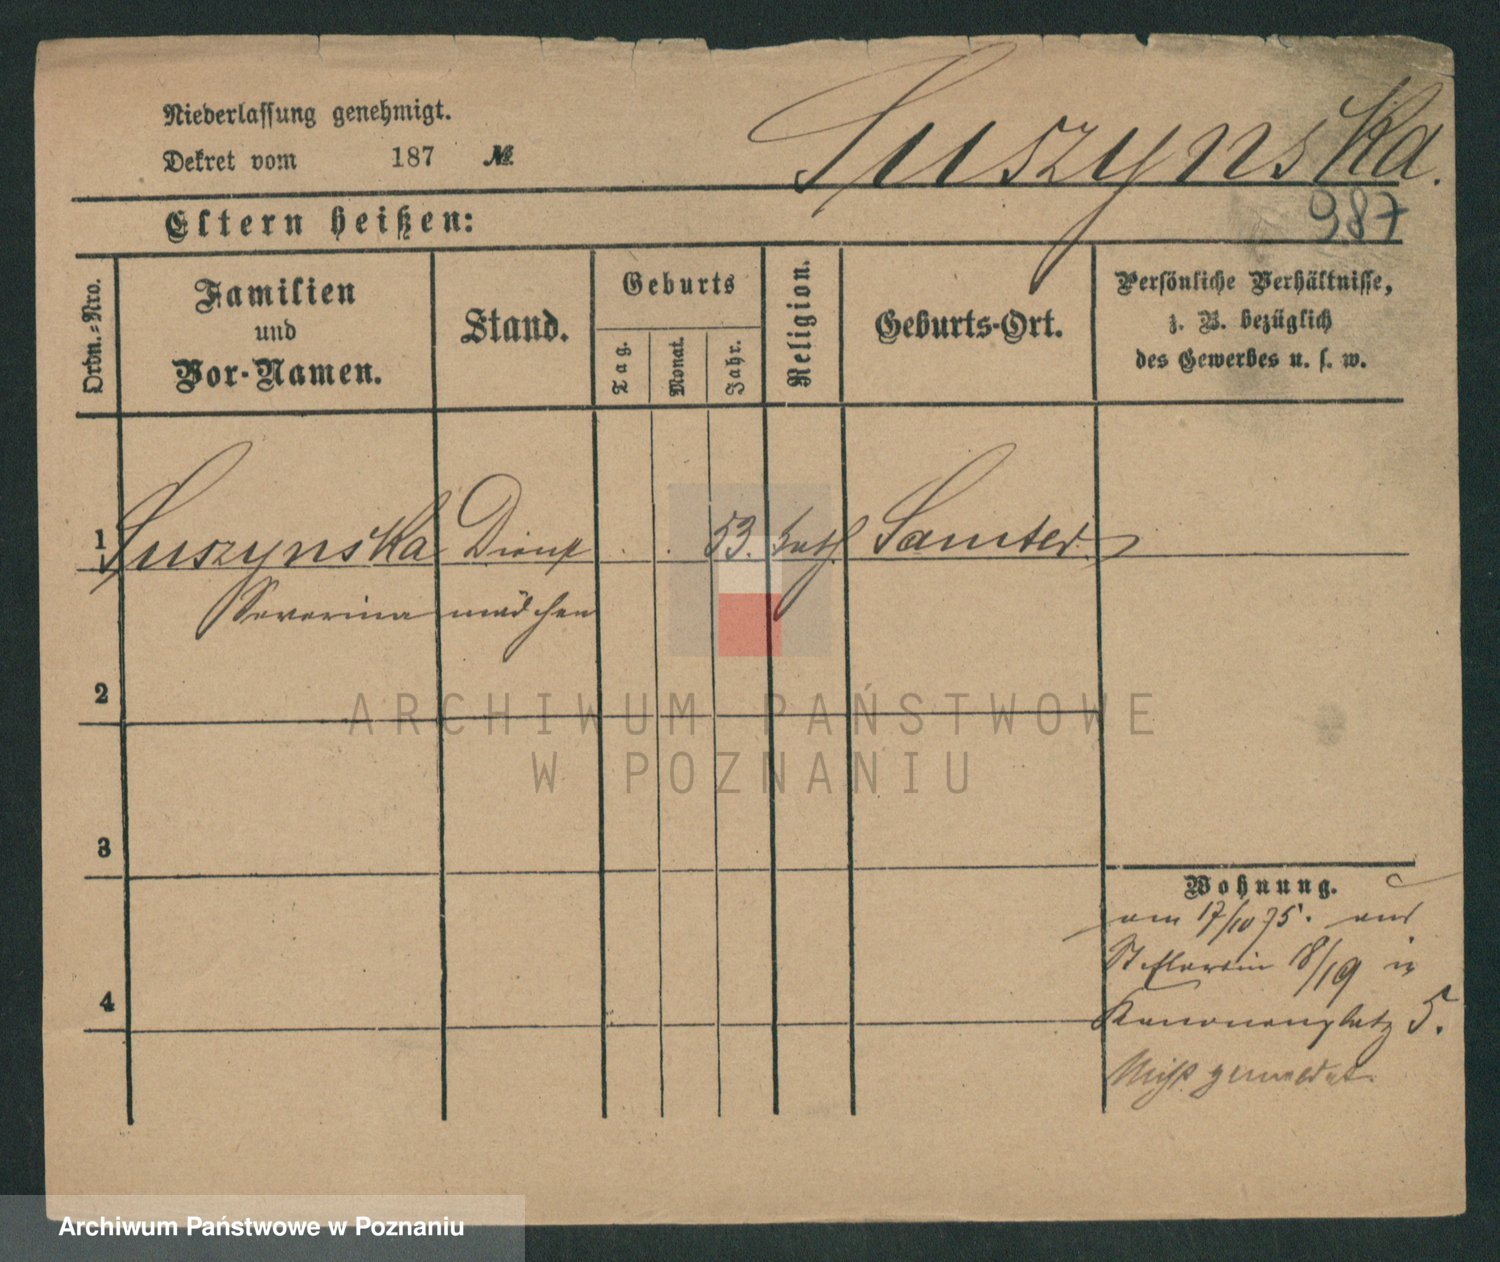 Niederlassung genehmigt.
Dekret vom 187 №
Suszynska.
987
Eltern heißen:
Ordn.-Nro.
Familien
und
Vor-Namen.
Stand.
Geburts
Tag.
Monat.
Jahr.
Religion.
Geburts-Ort.
Persönliche Verhältnisse,
z. B. bezüglich
des Gewerbes u. s. w.
1 Suszynska Dienst 53. kath. Samter
Severina mädchen
2
ARCHIWUM PAŃSTWOWE
W POZNANIU
3
Wohnung.
am 17/10 75. aus
St Martin 18/19 in
4
Kanonenplatz 5.
Nicht gemeldet.
Archiwum Państwowe w Poznaniu